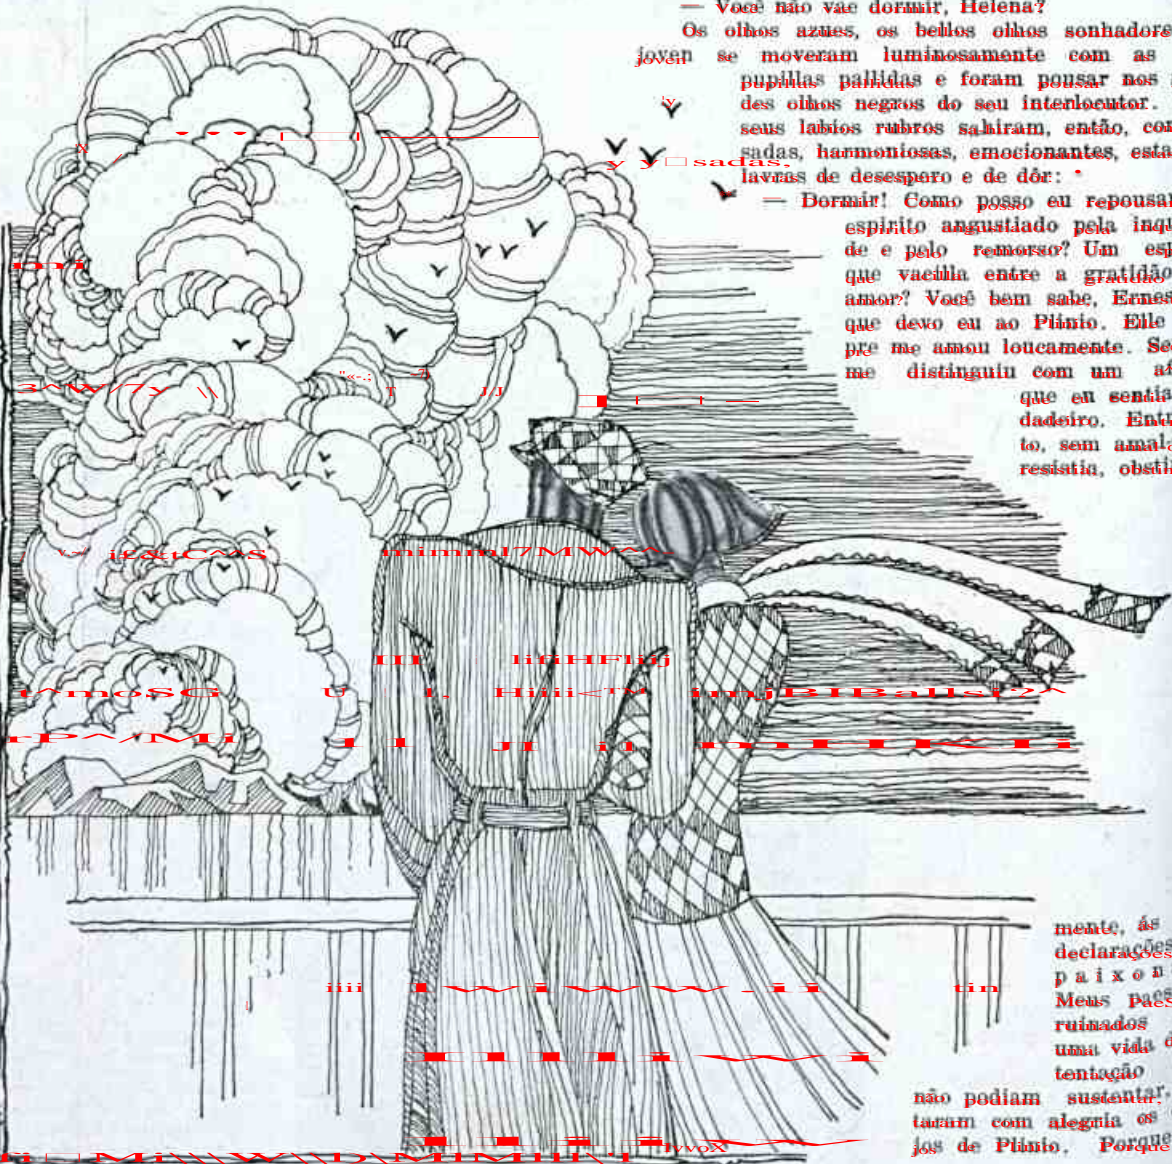 — Você não vae dormir, Helena?
Os olhos azues, os bellos olhos sonhadore
joven se moveram luminosamente com as
pupillas pallidas e foram pousar nos
des olhos negros do seu interlocutor.
seus labios rubros sahiram, então, com
sadas, harmoniosas, emocionantes, esta
lavras de desespero e de dôr:
— Dormir! Como posso eu repousar
espirito angustiado pela inqu
de e pelo remorso? Um esp
que vacilla entre a gratidão
amor? Você bem sabe, Ernes
que devo eu ao Plinio. Elle
pre me amou loucamente. Se
me distinguiu com um af
que eu sentia
dadeiro. Entr
to, sem amal-o
resistia, obstin
mente, ás
declarações
paixon
Meus Paes
ruinados
uma vida d
tentação
não podiam sustentar.
taram com alegria os
jos de Plinio. Porque